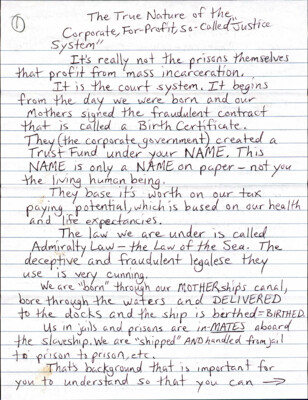 ①
The True Nature of the...
Corporate, For-Profit, So-Called Justice
System"
It's really not the prisons themselves
that profit from mass incarceration.
It is the court system. It begins
from the day we were born and our
Mothers signed the fraudulent contract
that is called a Birth Certificate.
They (the corporate government) created a
Trust Fund under your NAME. This
NAME is only a NAME on paper - not you
the living human being.
They base it's worth on our tax
paying potential, which is based on our health
and life expectancies.
The law we are under is called
Admiralty Law - the Law of the Sea. The
deceptive and fraudulent legalese they
use is very cunning.
We are "born" through our MOTHERships canal,
bore through the waters and DELIVERED
to the docks and the ship is berthed = BIRTHED.
Us in jails and prisons are in-MATES aboard
the slaveship. We are "shipped" AND handled from jail
to prison to prison, etc.
That's background that is important for
you to understand so that you can →